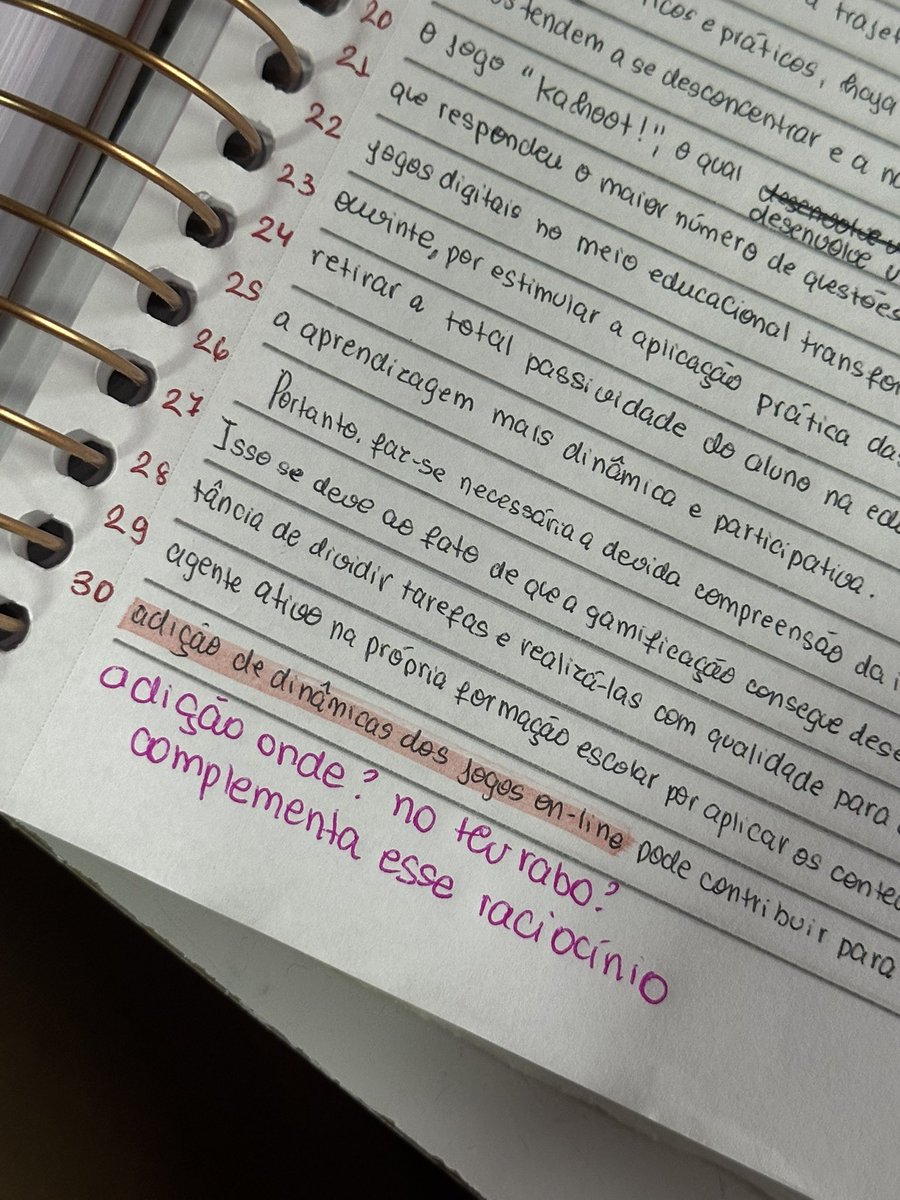 a trajet
icos e práticos, haja
20 os tendem a se desconcentrar e a no
21 o jogo "Kahoot!", o qual desenvolve u
desenvolve u
22 que respondeu o maior número de questões
23 jogos digitais no meio educacional transfor
24 ouvinte, por estimular a aplicação prática das
25 retirar a total passividade do aluno na edu
26 a aprendizagem mais dinâmica e participativa.
27 Portanto, faz-se necessária a devida compreensão da i
28 Isso se deve ao fato de que a gamificação consegue dese
29 tância de dividir tarefas e realizá-las com qualidade para
30 agente ativo na própria formação escolar por aplicar os conteú
adição de dinâmicas dos jogos on-line pode contribuir para
adição onde? no teu rabo?
complementa esse raciocínio